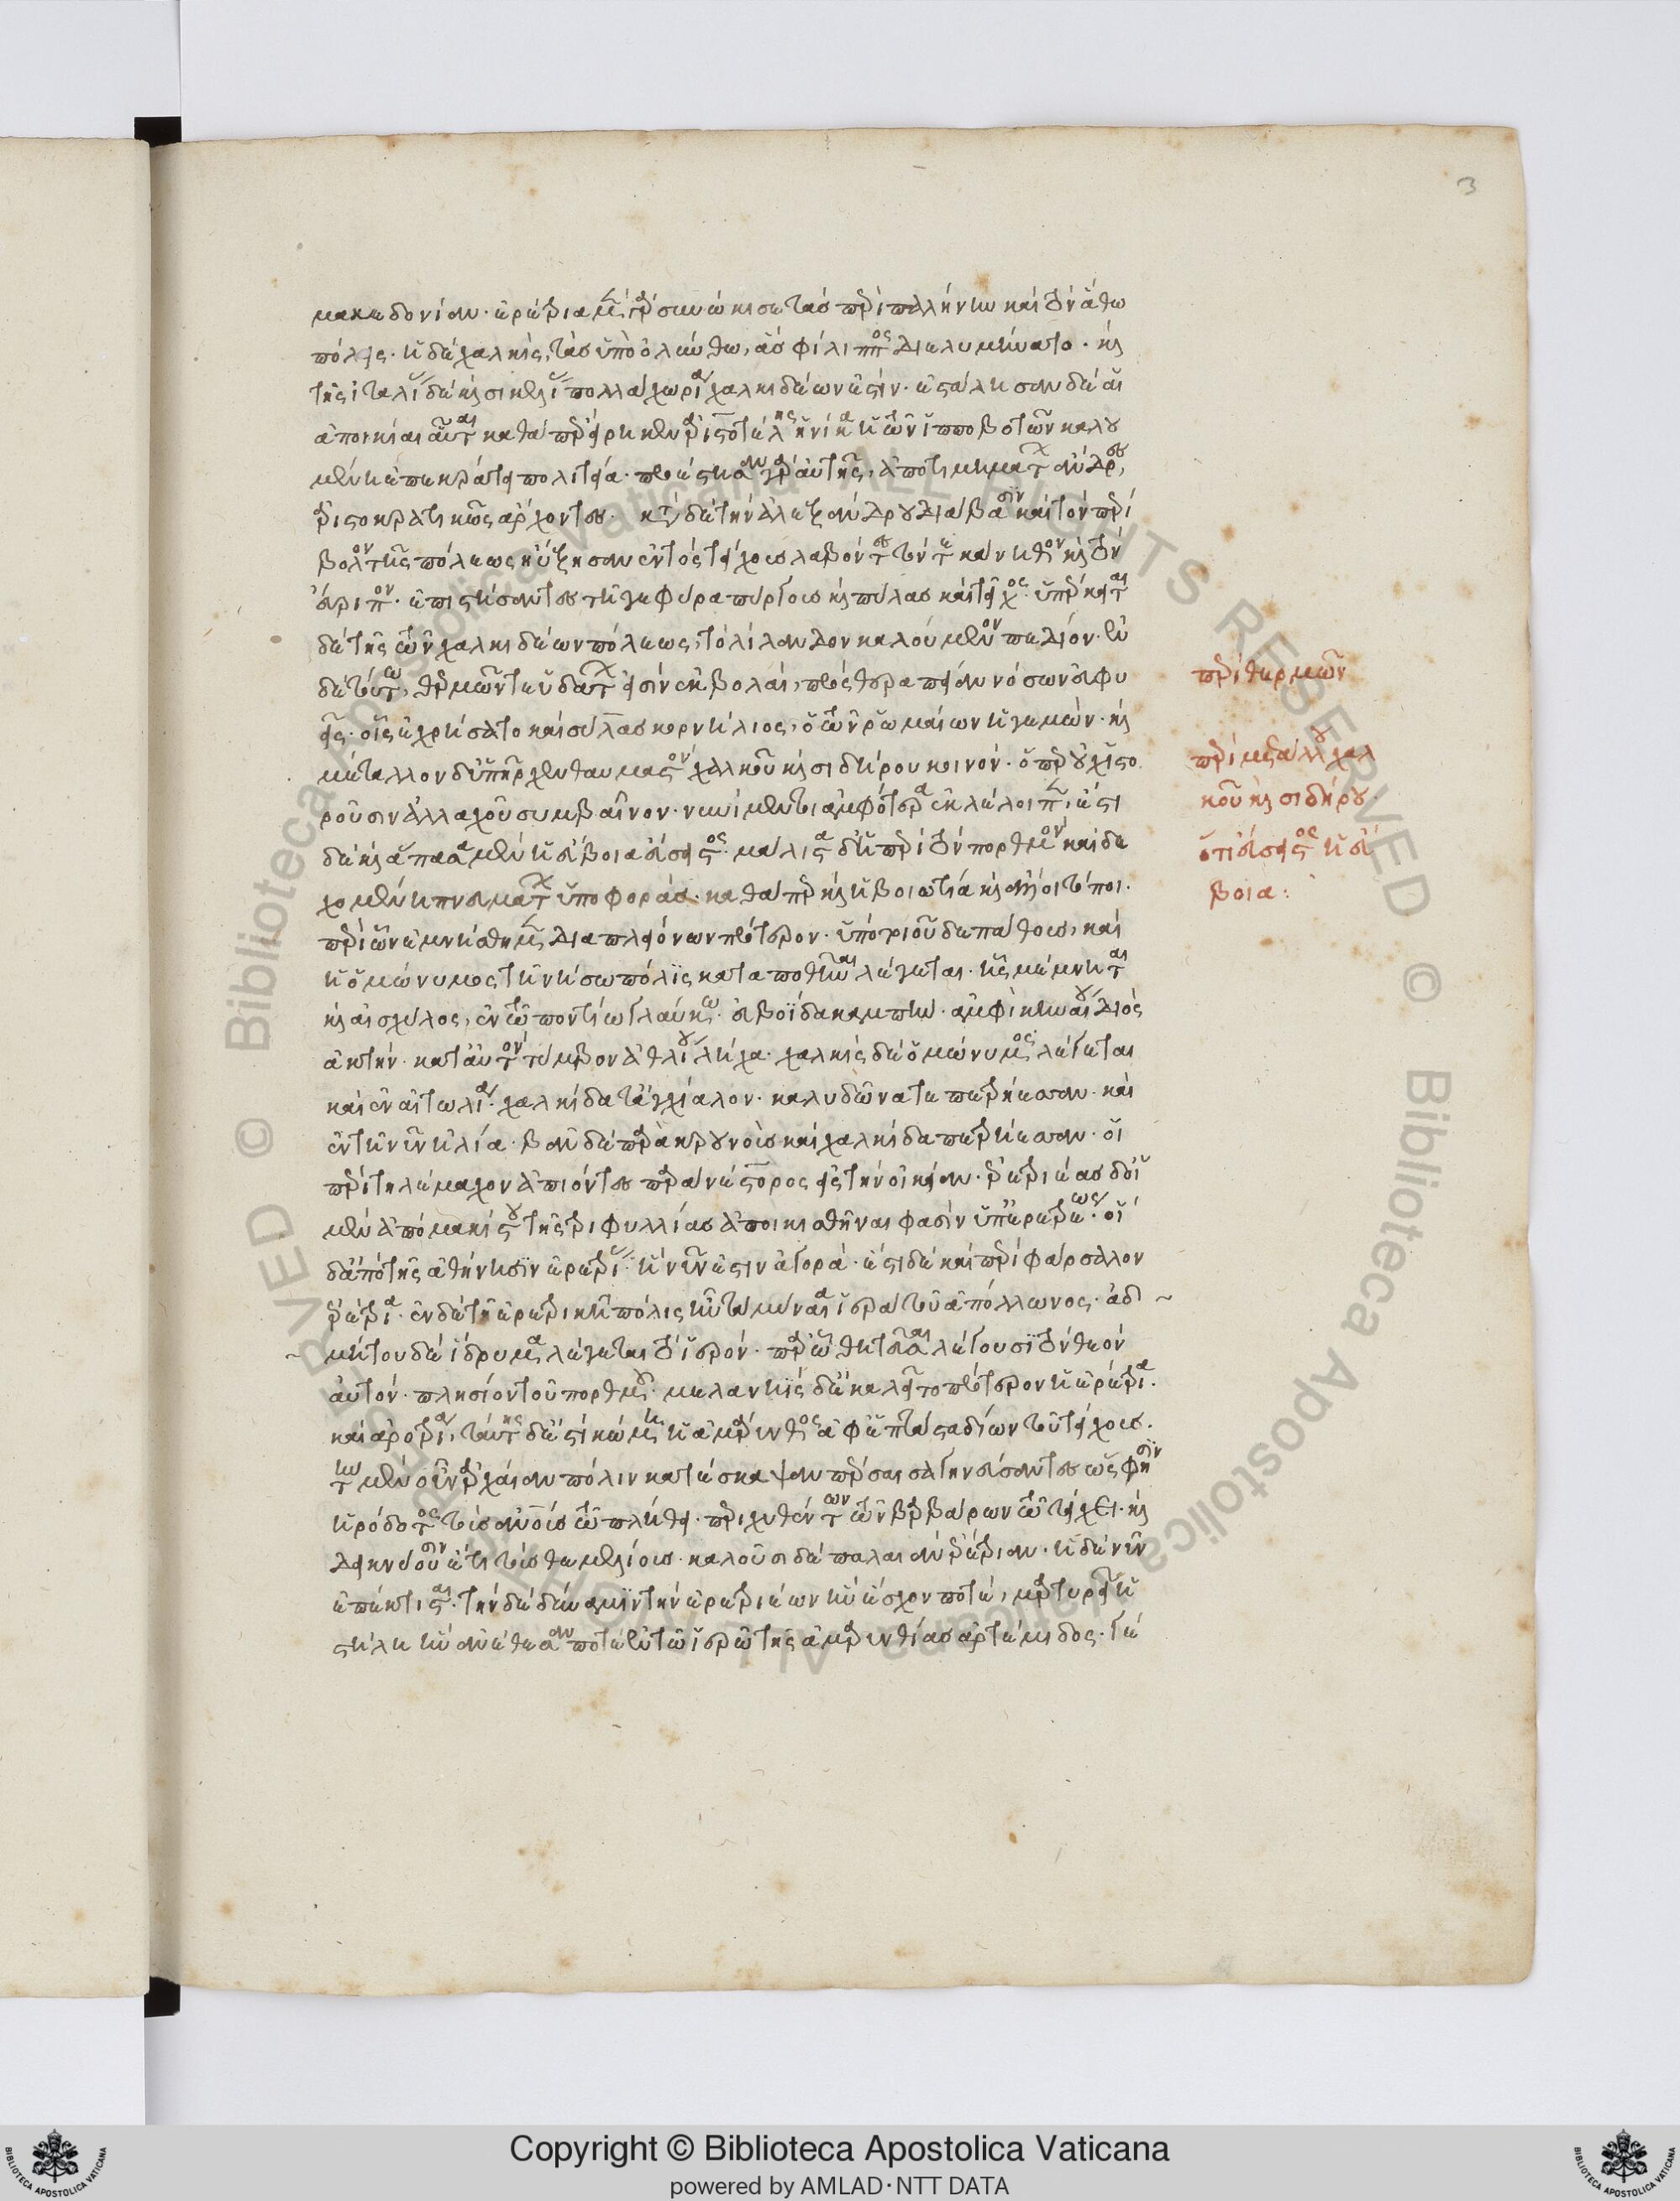 μακεδονίαν· ἐρέτρια μὲν γὰρ συνώκησε τὰσ περὶ παλλήνην καὶ τὸν ἄθω
πόλεις· ἡ δὲ χαλκὶς, τὰσ ὑπὸ ὀλύνθω, ἃσ φίλιππος διελυμήνατο· καὶ
τῆς ἰταλίας δὲ καὶ σικελίας πολλὰ χωρία χαλκιδέων ἐστὶν· ἐστάλησαν δὲ αἱ
ἀποικίαι αὗται καθάπερ εἴρηκεν ἀριστοτέλης ἡνίκα ἡ τῶν ἱπποβοτῶν καλου
μένη ἐπεκράτει πολιτεία· προέστησαν γὰρ αὐτῆς, ἀπὸ τιμημάτων ἄνδρες,
ἀριστοκρατικῶς ἄρχοντες· κατὰ δὲ τὴν ἀλεξάνδρου διάβασιν καὶ τὸν περί
βολον τῆς πόλεως ηὔξησαν ἐντὸς τείχουσ λαβόντες τόν τε κάνηθον καὶ τὸν
εὔριπον· ἐπιστήσαντες τῆ γεφύρα πύργουσ καὶ πύλασ καὶ τεῖχος· ὑπέρκειται
δὲ τῆς τῶν χαλκιδέων πόλεως, τὸ λίλανδον καλούμενον πεδίον· ἐν
δὲ τούτω, θερμῶν τε ὑδάτων εἰσὶν ἐκβολαὶ, πρὸς θεραπείαν νόσων εὐφυ
εῖς· οἷς ἐχρήσατο καὶ σύλλασ κορνήλιος, ὁ τῶν ῥωμαίων ἡγεμών· καὶ
μέταλλον δ' ὑπῆρχεν θαυμαστὸν χαλκοῦ καὶ σιδήρου κοινόν· ὅπερ οὐχ ἱστο
ροῦσιν ἀλλαχοῦ συμβαῖνον· νυνὶ μέντοι ἀμφότερα ἐκλέλοιπεν, ἔστι
δὲ καὶ ἅπασα μὲν ἡ εὔβοια εὔσειστος· μάλιστα δ' ἡ περὶ τὸν πορθμὸν καὶ δε
χομένη πνευμάτων ὑποφοράσ· καθάπερ καὶ ἡ βοιωτία καὶ ἄλλοι τόποι·
περὶ ὧν ἐμνήσθημεν διὰ πλειόνων πρότερον· ὑπὸ τοιοῦδε πάθουσ, καὶ
ἡ ὁμώνυμος τῆ νήσω πόλις καταποθῆναι λέγεται· ἧς μέμνηται
καὶ αἰσχύλος, ἐν τῶ ποντίω γλαύκω· εὐβοΐδα καμπὴν· ἀμφὶ κηναίου διὸς
ἀκτὴν· κατ' αὐτὸν τύμβον ἀθλίου λίχα· χαλκὶς δὲ ὁμώνυμος λέγεται
καὶ ἐν αἰτωλία· χαλκίδα τ' ἀγχίαλον· καλυδῶνα τε πετρήεσσαν· καὶ
ἐν τῆ νῦν ἠλεία· βὰν δὲ παρὰ κρουνοὺσ καὶ χαλκίδα πετρήεσσαν· οἱ
περὶ τηλέμαχον ἀπιόντεσ παρὰ νέστορος εἰς τὴν οἰκείαν· ἐρέτριαν δ' οἱ
μὲν ἀπὸ μακίστου τῆς τριφυλίασ ἀποικισθῆναι φασὶν ὑπ' ἐρετριέως· οἱ
δ' ἀπὸ τῆς ἀθήνησιν ἐρετρίας· ἣ νῦν ἐστὶν ἀγορά· ἔστι δὲ καὶ περὶ φάρσαλον
ἐρέτρια· ἐν δὲ τῆ ἐρετρικῆ πόλις ἦν ταμύναι ἱερὰ τοῦ ἀπόλλωνος· ἀδ
μήτου δὲ ἵδρυμα λέγεται τὸ ἱερόν· παρ' ὧ θητεῦσαι λέγουσι τὸν θεὸν
αὐτόν· πλησίον τοῦ πορθμοῦ· μελανηῒς δ' ἐκαλεῖτο πρότερον ἡ ἐρέτρια·
καὶ ἀρότρια, ταύτης δ' ἐστὶ κώμη ἡ ἀμάρυνθος ἀφ' ἑπτὰ σταδίων τοῦ τείχουσ·
τὴν μὲν οὖν ἀρχαίαν πόλιν κατέσκαψαν πέρσαι σαγηνεύσαντεσ ὥς φησιν
ἡρόδοτος τοὺσ ἀνθρώπουσ τῶ πλήθει· περιχυθέντων τῶν βαρβάρων τῶ τείχει· καὶ
δεικνύουσιν ἔτι τοὺσ θεμελίουσ· καλοῦσι δὲ παλαιὰν ἐρέτριαν· ἡ δὲ νῦν
ἐπέκτισται· τὴν δὲ δύναμιν τὴν ἐρετριέων ἣν ἔσχον ποτέ, μαρτυρεῖ ἡ
στήλη ἣν ἀνέθεσαν ποτὲ ἐν τῶ ἱερῶ τῆς ἀμαρυνθίασ ἀρτέμιδος· γέ
περὶ θερμῶν
περὶ μετάλλου χαλ
κοῦ καὶ σιδήρου·
ὅτι εὔσειστος ἡ εὔ
βοια:
3
Copyright © Biblioteca Apostolica Vaticana
powered by AMLAD·NTT DATA